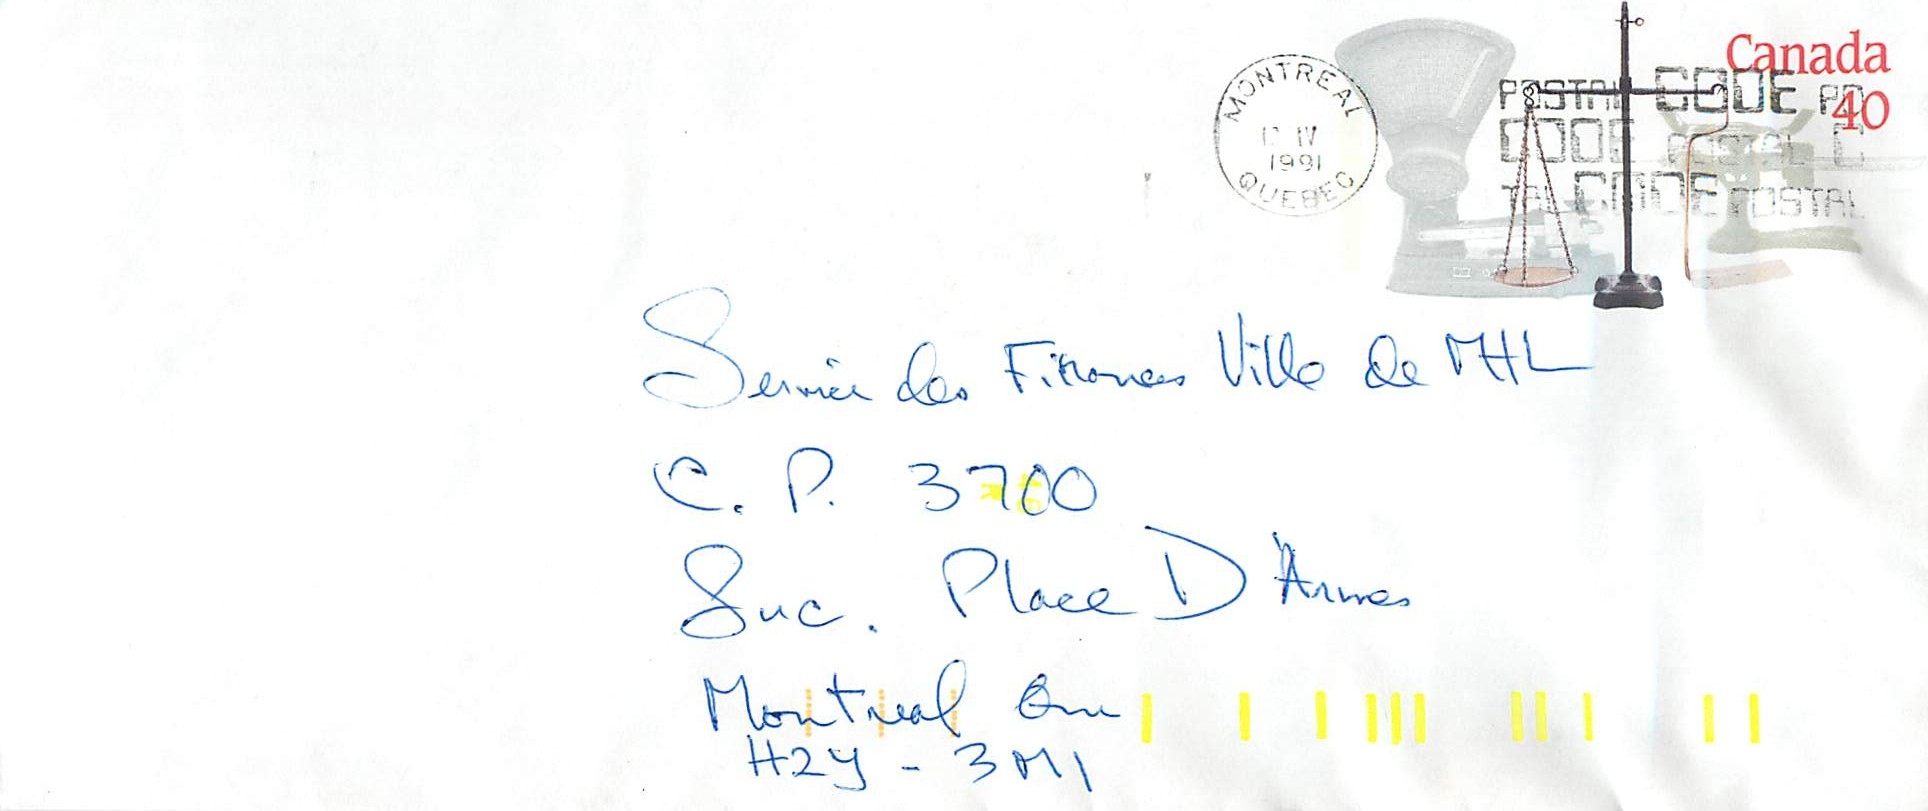 Canada
40
MONTREAL
IV
1991
QUEBEC
POSTAL CODE PO
CODE POSTAL C
TAL CODE POSTAL
Service des Finances Ville de MTL
C. P. 3700
Suc. Place D'Armes
Montreal Qu
H2Y - 3M1